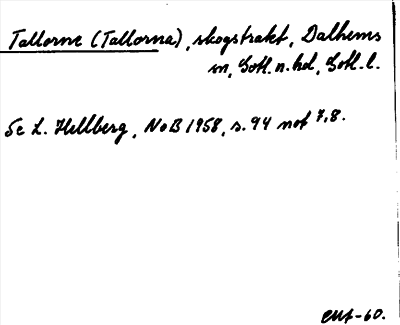 Tallorne (Tallorna), skogstrakt, Dalhems
sn, Gotl. n. hd, Gotl. l.
Se L. Hellberg, NoB 1958, s. 94 not 7, 8.
-60.